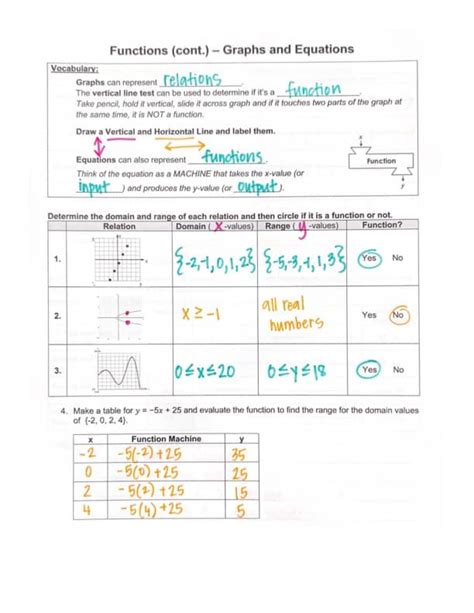 Functions (cont.) – Graphs and Equations
Vocabulary:
Graphs can represent relations.
The vertical line test can be used to determine if it's a function.
Take pencil, hold it vertical, slide it across graph and if it touches two parts of the graph at
the same time, it is NOT a function.
Draw a Vertical and Horizontal Line and label them.
Equations can also represent functions.
Think of the equation as a MACHINE that takes the x-value (or
input) and produces the y-value (or output).
x
Function
y
Determine the domain and range of each relation and then circle if it is a function or not.
Relation Domain (x-values) Range (y-values) Function?
1. {-2,-1,0,1,2} {-5,-3,-1,1,3} Yes No
2. x ≥ -1 all real numbers Yes No
3. 0 ≤ x ≤ 20 0 ≤ y ≤ 18 Yes No
4. Make a table for y = –5x + 25 and evaluate the function to find the range for the domain values
of {-2, 0, 2, 4}.
x Function Machine y
-2 -5(-2)+25 35
0 -5(0)+25 25
2 -5(2)+25 15
4 -5(4)+25 5